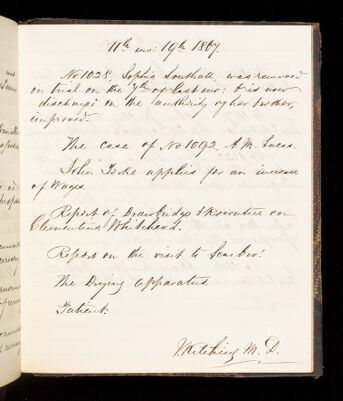 11th mo: 19th 1867.
No 1028, Sophia Southall, was removed
on trial on the 7th of last mo: & is now
discharged on the authority of her brother,
improved.
The case of No 1092. A. M. Lucas.
John Yorke applies for an increase
of Wages.
Report of Drawbridge & Rowntree on
Clementina Whitehead.
Report on the visit to Scarbro'.
The Drying apparatus.
Patient:
Kitching M. D.